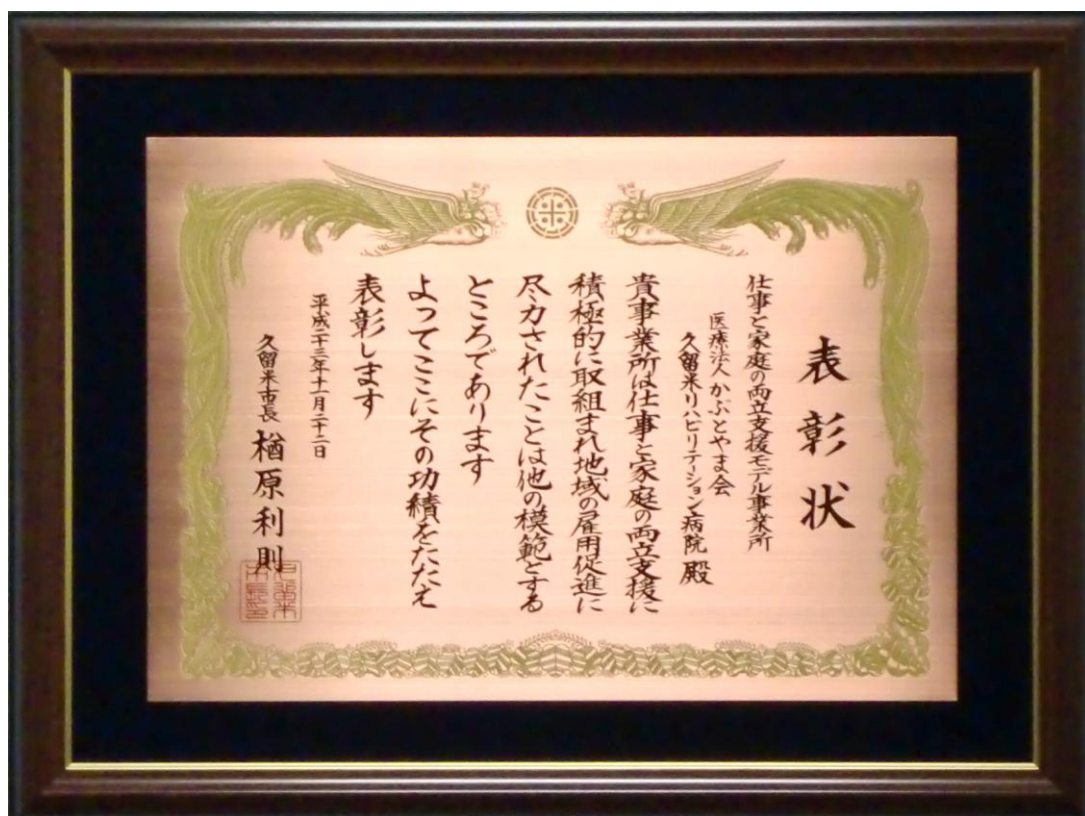 表彰状
仕事と家庭の両立支援モデル事業所
医療法人かぶとやま会
久留米リハビリテーション病院 殿
貴事業所は仕事と家庭の両立支援に
積極的に取組まれ地域の雇用促進に
尽力されたことは他の模範とする
ところであります
よってここにその功績をたたえ
表彰します
平成二十三年十一月二十二日
久留米市長 楢原利則
久留米
市長印